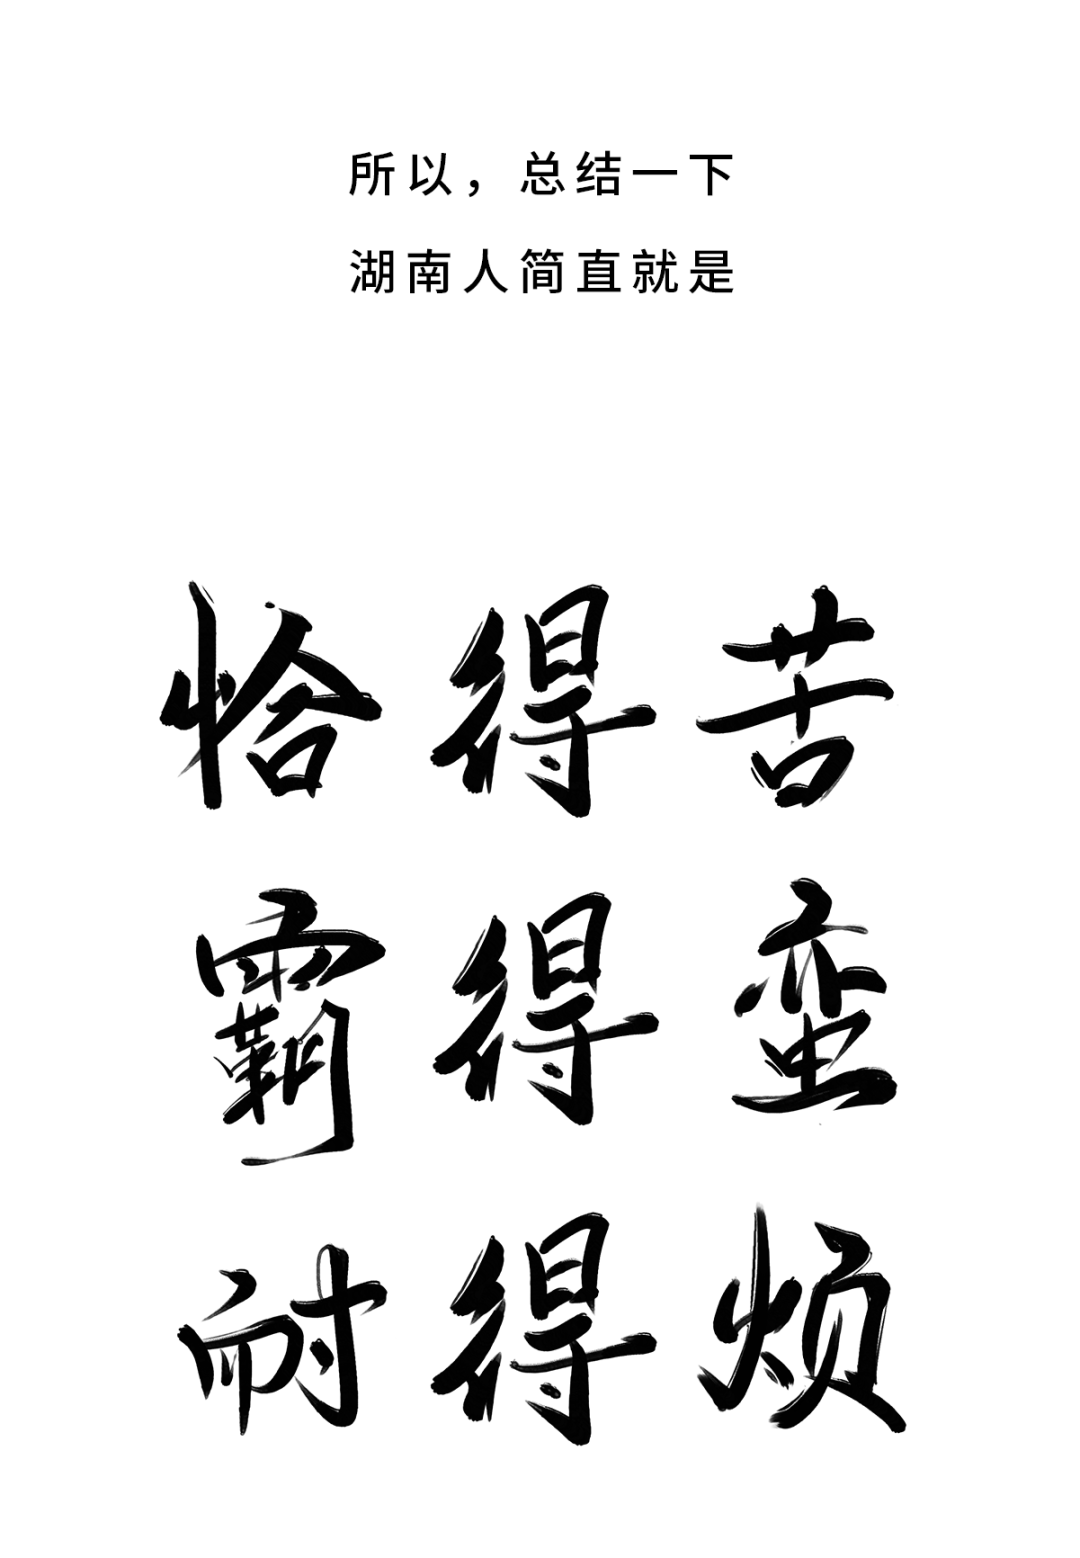 所以，总结一下
湖南人简直就是
恰得苦
霸得蛮
耐得烦